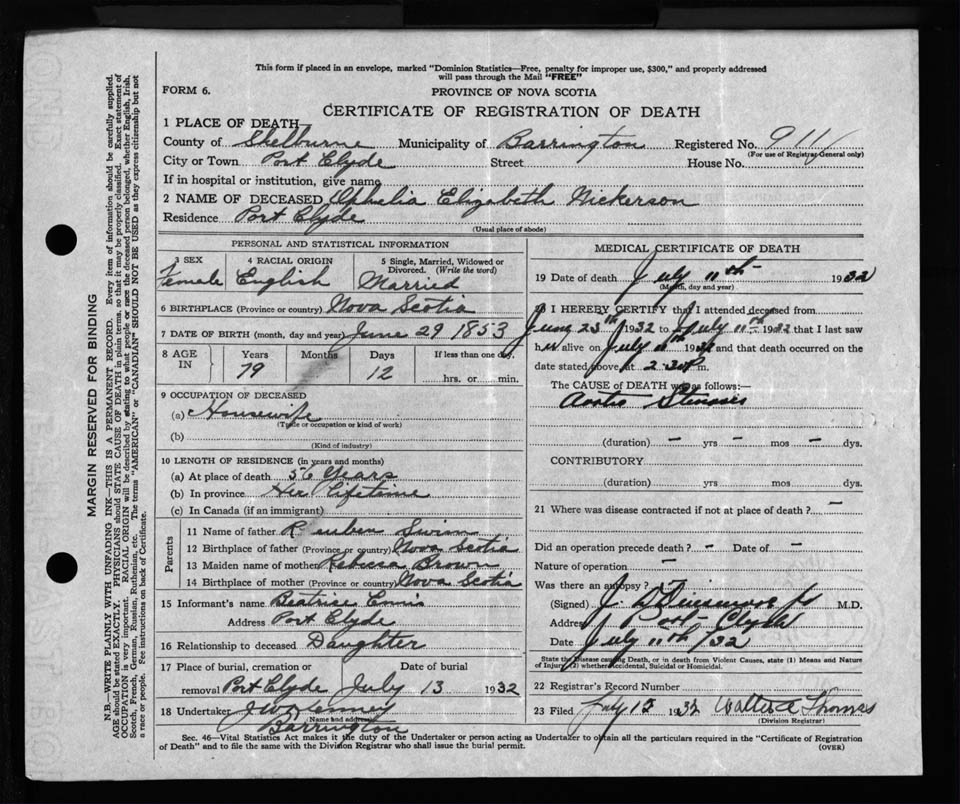 This form if placed in an envelope, marked "Dominion Statistics—Free, penalty for improper use, $300," and properly addressed
will pass through the Mail "FREE"
FORM 6. PROVINCE OF NOVA SCOTIA
CERTIFICATE OF REGISTRATION OF DEATH
1 PLACE OF DEATH—
County of Shelburne Municipality of Barrington Registered No. 911
(For use of Registrar General only)
City or Town Port Clyde Street House No.
If in hospital or institution, give name
2 NAME OF DECEASED Ophelia Elizabeth Nickerson
Residence Port Clyde
(Usual place of abode)
PERSONAL AND STATISTICAL INFORMATION
3 SEX 4 RACIAL ORIGIN 5 Single, Married, Widowed or Divorced. (Write the word)
Female English Married
6 BIRTHPLACE (Province or country) Nova Scotia
7 DATE OF BIRTH (month, day and year) June 29 1853
8 AGE IN Years Months Days If less than one day.
79 12 hrs. or min.
9 OCCUPATION OF DECEASED
(a) Housewife
(Trade or occupation or kind of work)
(b)
(Kind of industry)
10 LENGTH OF RESIDENCE (in years and months)
(a) At place of death 56 Years
(b) In province Her Lifetime
(c) In Canada (if an immigrant)
Parents
11 Name of father Reuben Swim
12 Birthplace of father (Province or country) Nova Scotia
13 Maiden name of mother Rebecca Brown
14 Birthplace of mother (Province or country) Nova Scotia
15 Informant's name Beatrice
Address Port Clyde
16 Relationship to deceased Daughter
17 Place of burial, cremation or Date of burial
removal Port Clyde July 13 1932
18 Undertaker
Name and address
Barrington
MEDICAL CERTIFICATE OF DEATH
19 Date of death July 11th 1932
(Month, day and year)
20 I HEREBY CERTIFY that I attended deceased from
June 23rd 1932 to July 11th 1932 that I last saw
her alive on July 11th 1932 and that death occurred on the
date stated above at 2.30 P.m.
The CAUSE OF DEATH was as follows:—
Aortic Stenosis
(duration) – yrs – mos – dys.
CONTRIBUTORY
(duration) yrs. mos. dys.
21 Where was disease contracted if not at place of death? –
Did an operation precede death? – Date of –
Nature of operation –
Was there an autopsy? –
(Signed) M.D.
Address Port Clyde
Date July 11th /32
State the Disease causing Death, or in death from Violent Causes, state (1) Means and Nature
of Injury, (2) whether Accidental, Suicidal or Homicidal.
22 Registrar's Record Number
23 Filed July 12 1932 Walter A Thomas
(Division Registrar)
Sec. 46—Vital Statistics Act makes it the duty of the Undertaker or person acting as Undertaker to obtain all the particulars required in the "Certificate of Registration
of Death" and to file the same with the Division Registrar who shall issue the burial permit. (OVER)
MARGIN RESERVED FOR BINDING
N.B.—WRITE PLAINLY WITH UNFADING INK—THIS IS A PERMANENT RECORD. Every item of information should be carefully supplied.
AGE should be stated EXACTLY. PHYSICIANS should STATE CAUSE OF DEATH in plain terms, so that it may be properly classified. Exact statement of
OCCUPATION is very important. RACIAL ORIGIN will be described by stating to what people or race the deceased person belonged, whether English, Irish,
Scotch, French, German, Russian, Ruthenian, etc. The terms "AMERICAN" or "CANADIAN" SHOULD NOT BE USED as they express citizenship but not
a race or people. Fee instructions on back of Certificate.